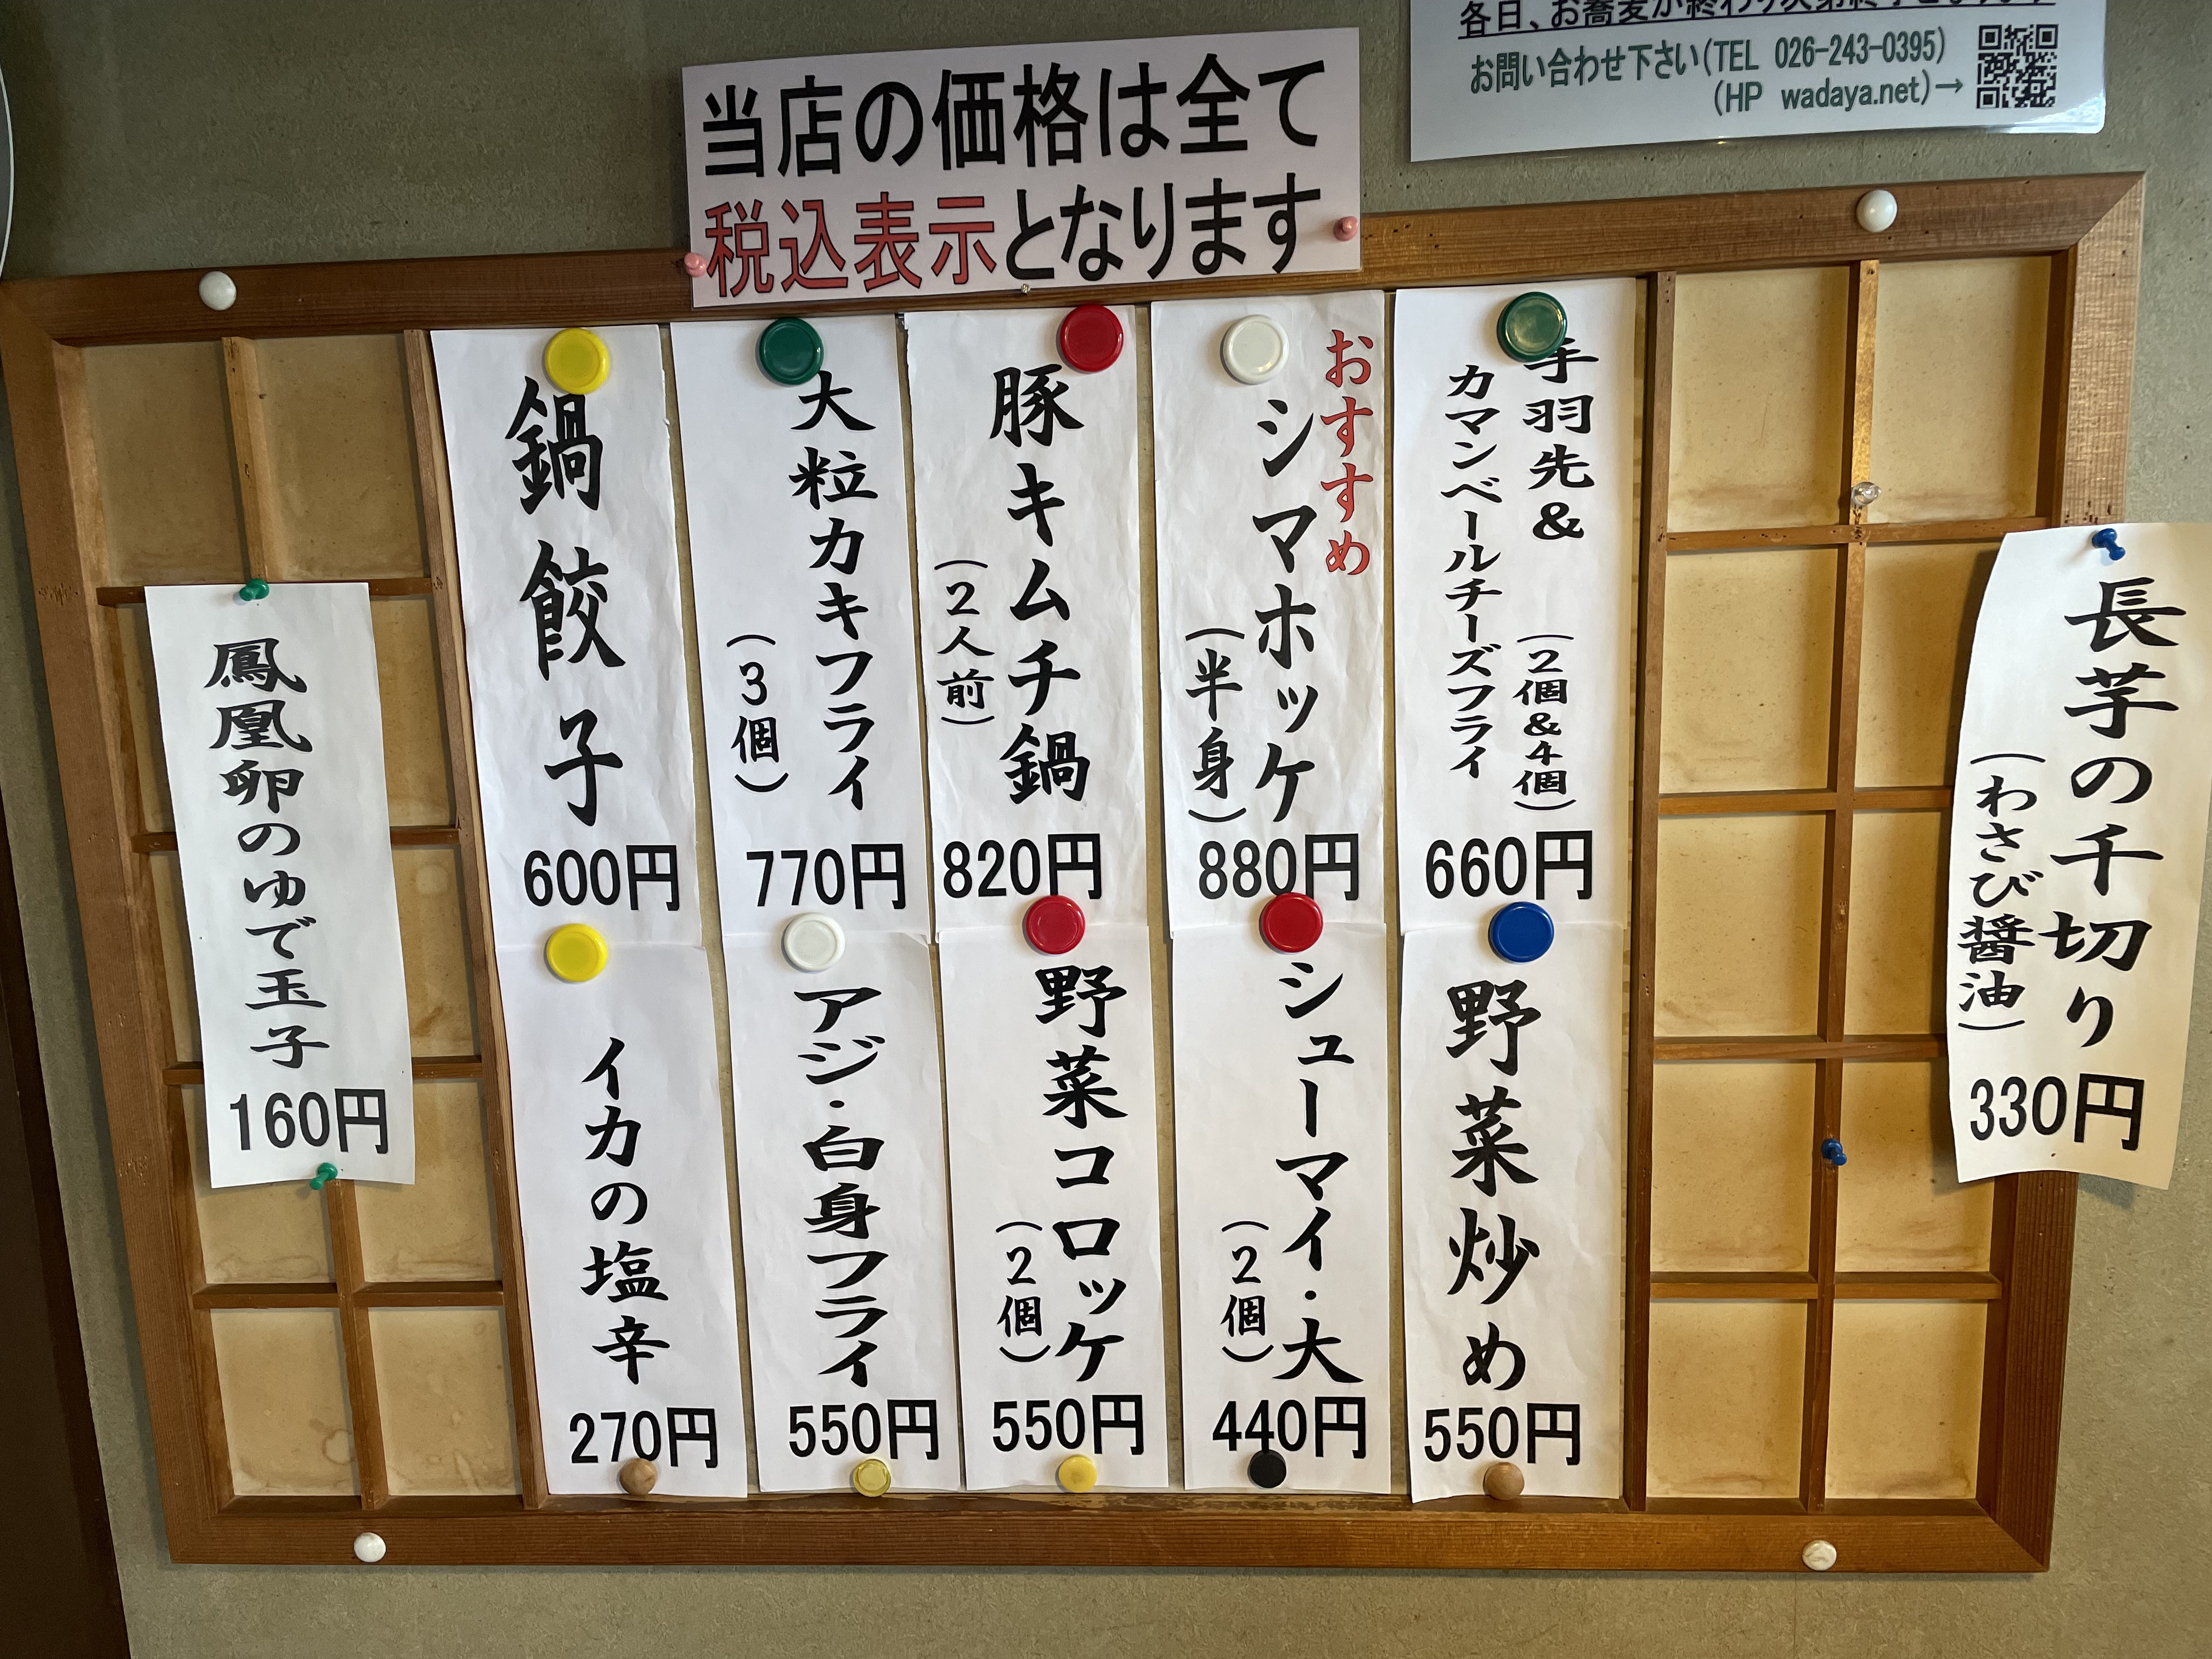 お問い合わせ下さい(TEL 026-243-0395)
(HP wadaya.net)→
当店の価格は全て
税込表示となります
長芋の千切り
(わさび醤油)
330円
手羽先&
(2個&4個)
カマンベールチーズフライ
660円
おすすめ
シマホッケ
(半身)
880円
豚キムチ鍋
(2人前)
820円
大粒カキフライ
(3個)
770円
鍋餃子
600円
野菜炒め
550円
シューマイ・大
(2個)
440円
野菜コロッケ
(2個)
550円
アジ・白身フライ
550円
イカの塩辛
270円
鳳凰卵のゆで玉子
160円